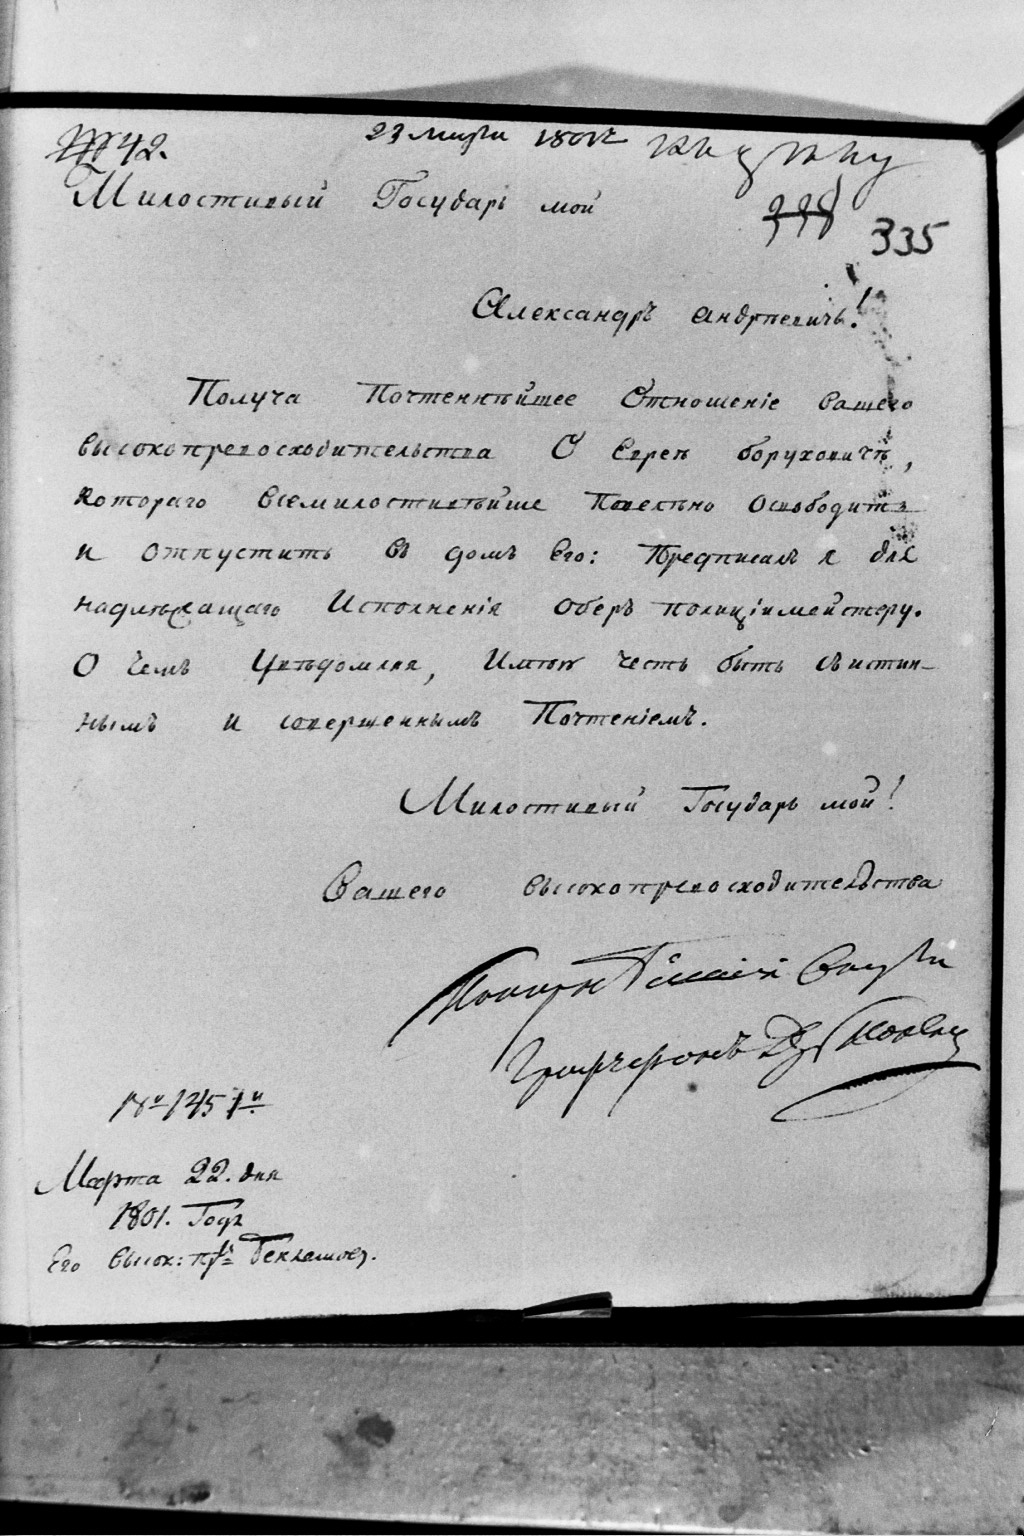 42.
23 марта 1801 г
Милостивый Государь мой
338
335
Александръ Андреевичь!
Получа Почтеннѣйшее Отношеніе вашего
высокопревосходительства О Евреѣ боруховичѣ,
котораго всемилостивѣйше Повелѣно Освободить
и отпустить въ домъ Его: Предписалъ я для
надлежащаго Исполненія Оберъ полиціймейстеру.
О чемъ Увѣдомляя, Имѣю честь быть съ истин-
нымъ и совершеннымъ Почтеніемъ.
Милостивый Государь мой!
Вашего высокопревосходительства
Покорнѣйшій слуга
Графъ фонъ деръ Паленъ
№ 1451й
Марта 22. дня
1801. Года
Его высок: пр: Беклешову.